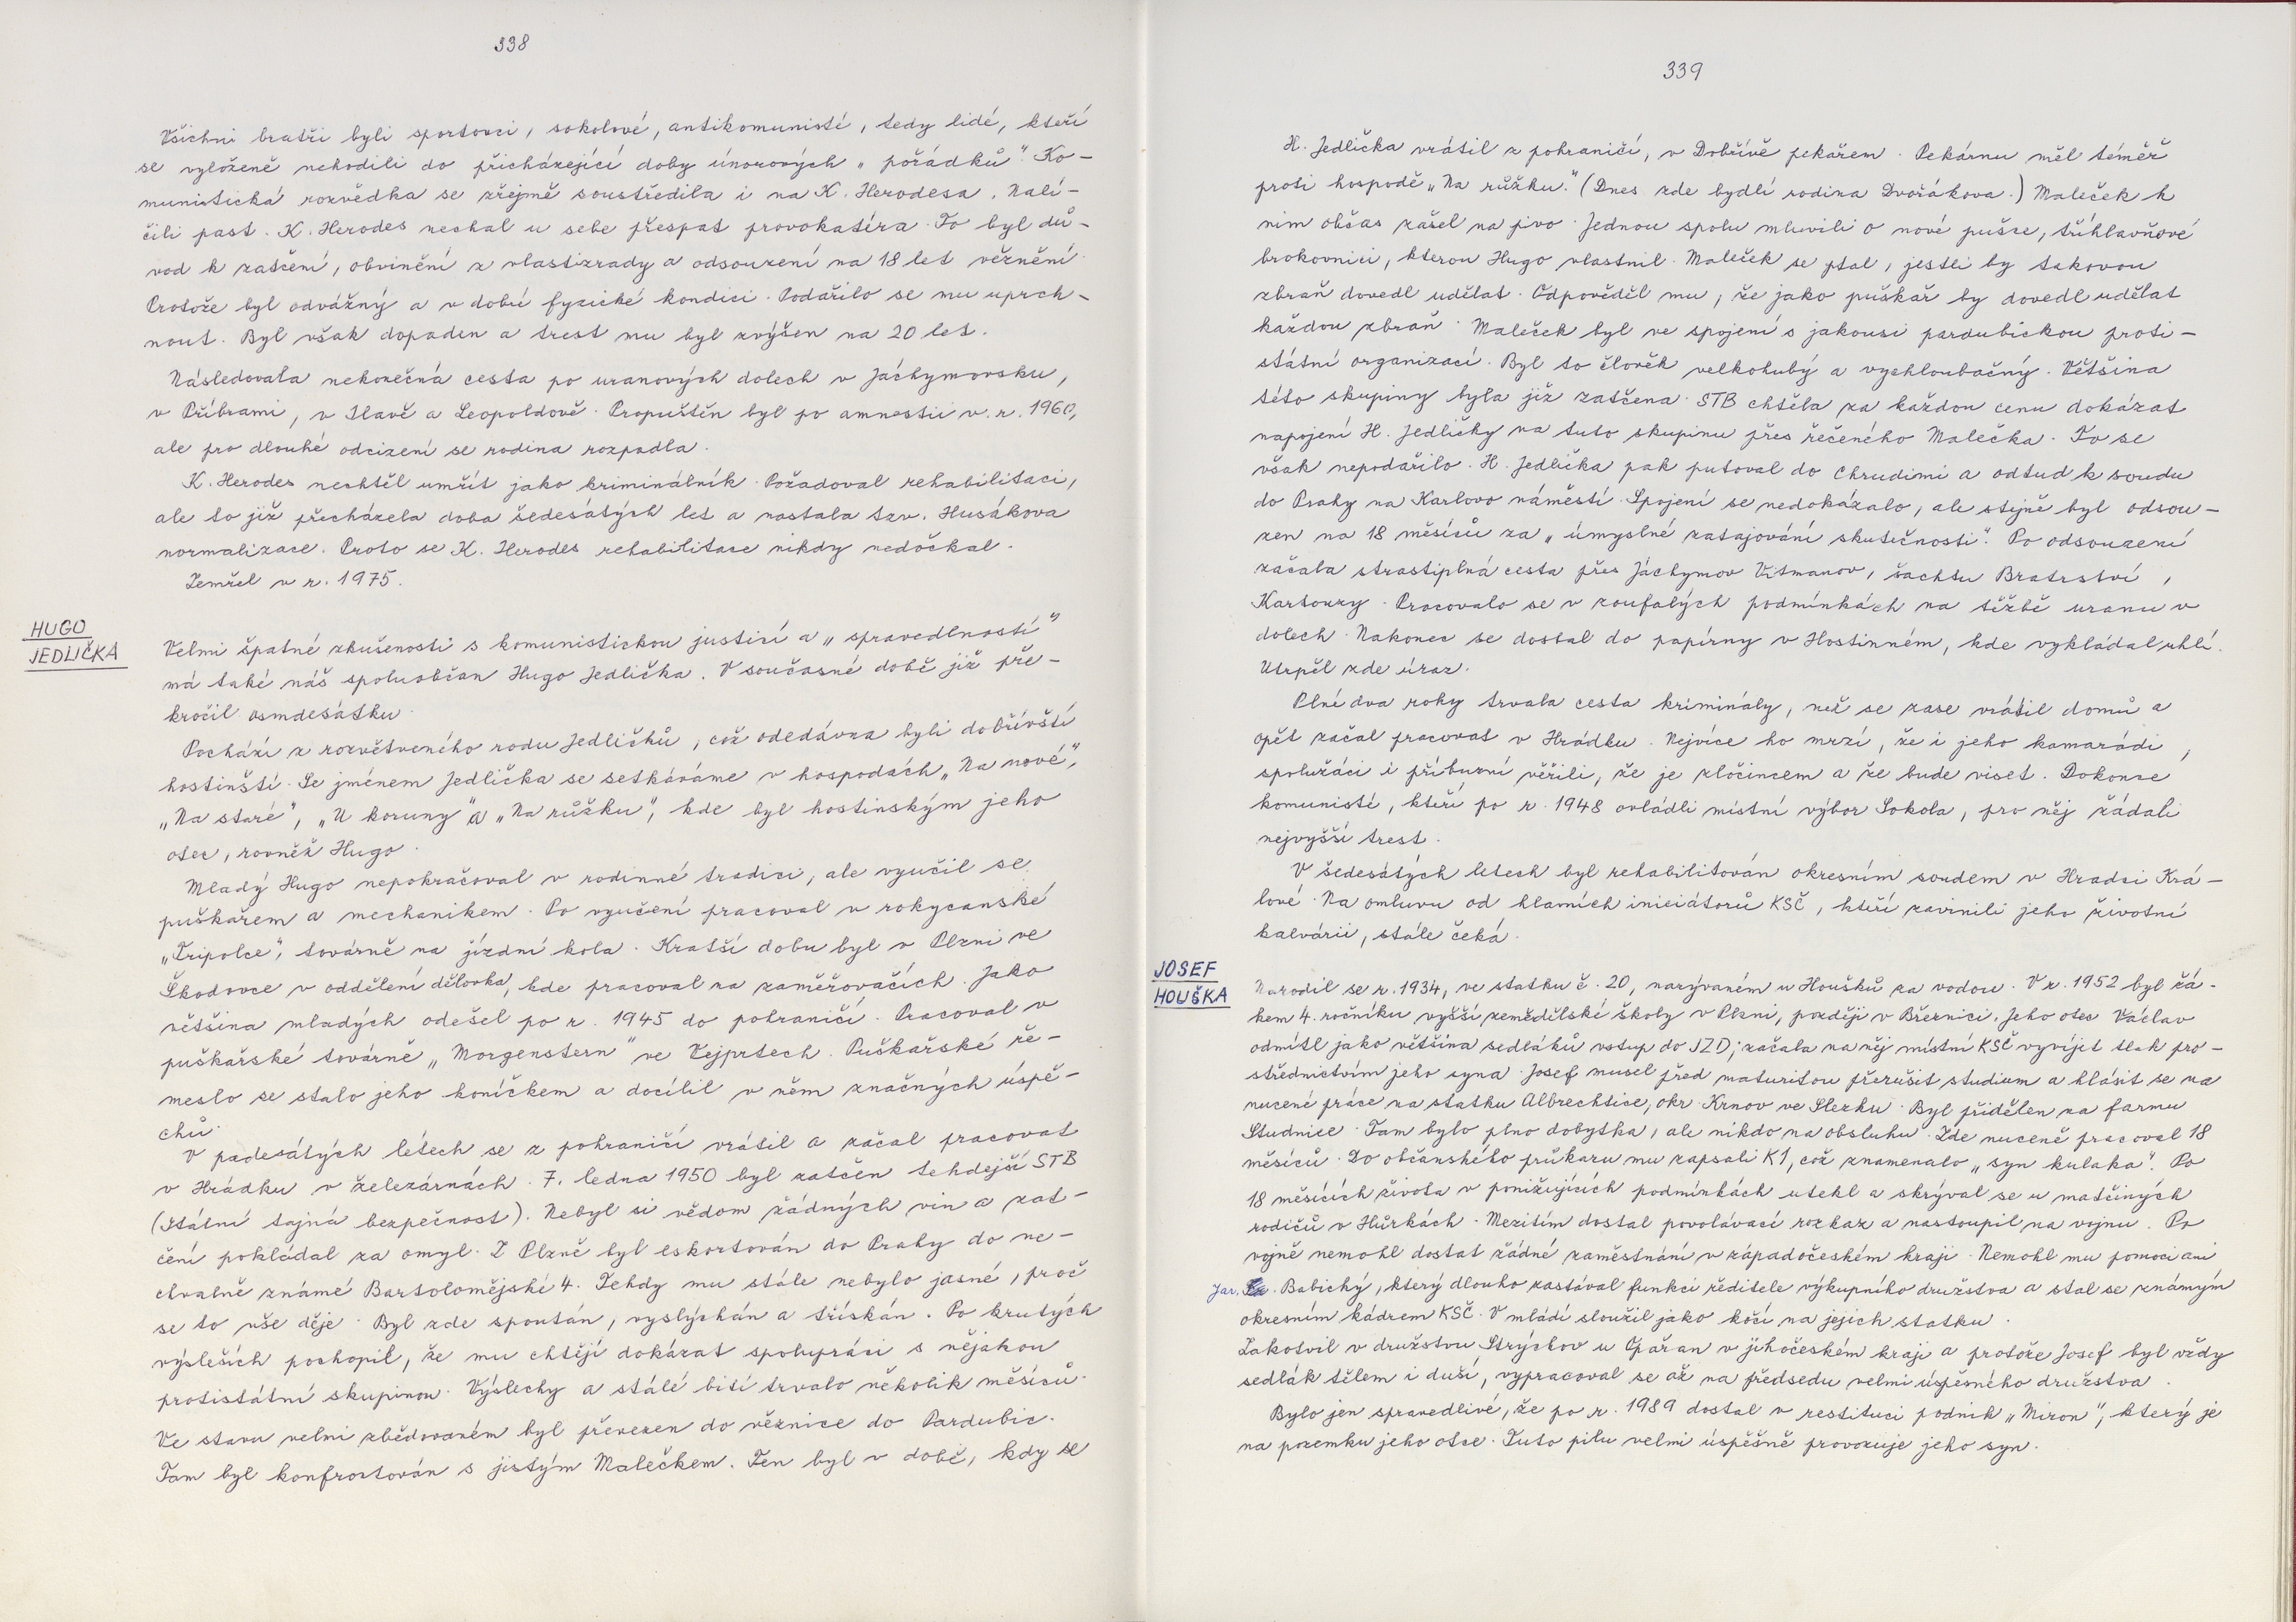 338
Všichni bratři byli sportovci, sokolové, antikomunisté, tedy lidé, kteří
se vyloženě nehodili do přicházející doby únorových „pořádků“. Ko-
munistická rozvědka se zřejmě soustředila i na K. Herodesa. Nalí-
čili past. K. Herodes nechal u sebe přespat provokatéra. To byl dů-
vod k zatčení, obvinění z vlastizrady a odsouzení na 18 let věznění.
Protože byl odvážný a v dobré fyzické kondici. Podařilo se mu uprch-
nout. Byl však dopaden a trest mu byl zvýšen na 20 let.
Následovala nekonečná cesta po uranových dolech v Jáchymovsku,
v Příbrami, v Ilavě a Leopoldově. Propuštěn byl po amnestii v r. 1960,
ale pro dlouhé odcizení se rodina rozpadla.
K. Herodes nechtěl umřít jako kriminálník. Požadoval rehabilitaci,
ale to již přecházela doba šedesátých let a nastala tzv. Husákova
normalizace. Proto se K. Herodes rehabilitace nikdy nedočkal.
Zemřel v r. 1975.
HUGO
JEDLIČKA
Velmi špatné zkušenosti s komunistickou justicí a „spravedlností“
má také náš spoluobčan Hugo Jedlička. V současné době již pře-
kročil osmdesátku.
Pochází z rozvětveného rodu Jedličků, což odedávna byli dobřívští
hostinští. Se jménem Jedlička se setkáváme v hospodách „Na nové“,
„Na staré“, „U koruny“ a „Na růžku“, kde byl hostinským jeho
otec, rovněž Hugo.
Mladý Hugo nepokračoval v rodinné tradici, ale vyučil se
puškařem a mechanikem. Po vyučení pracoval v rokycanské
„Tripolce“, továrně na jízdní kola. Kratší dobu byl v Plzni ve
Škodovce v oddělení dělovka, kde pracoval na zaměřovačích. Jako
většina mladých odešel po r. 1945 do pohraničí. Pracoval v
puškařské továrně „Morgenstern“ ve Vejprtech. Puškařské ře-
meslo se stalo jeho koníčkem a docílil v něm značných úspě-
chů.
V padesátých létech se z pohraničí vrátil a začal pracovat
v Hrádku v železárnách. 7. ledna 1950 byl zatčen tehdejší STB
(Státní tajná bezpečnost). Nebyl si vědom žádných vin a zat-
čení pokládal za omyl. Z Plzně byl eskortován do Prahy do ne-
chvalně známé Bartolomějské 4. Tehdy mu stále nebylo jasné, proč
se to vše děje. Byl zde spoután, vyslýchán a třískán. Po krutých
výsleších pochopil, že mu chtějí dokázat spolupráci s nějakou
protistátní skupinou. Výslechy a stálé bití trvalo několik měsíců.
Ve stavu velmi zbědovaném byl převezen do věznice do Pardubic.
Tam byl konfrontován s jistým Malečkem. Ten byl v době, kdy se
339
H. Jedlička vrátil z pohraničí, v Dobřívě pekařem. Pekárnu měl téměř
proti hospodě „Na růžku“. (Dnes zde bydlí rodina Dvořákova.) Maleček k
nim občas zašel na pivo. Jednou spolu mluvili o nové pušce, tříhlavňové
brokovnici, kterou Hugo vlastnil. Maleček se ptal, jestli by takovou
zbraň dovedl udělat. Odpověděl mu, že jako puškař by dovedl udělat
každou zbraň. Maleček byl ve spojení s jakousi pardubickou proti-
státní organizací. Byl to člověk velkohubý a vychloubačný. Většina
této skupiny byla již zatčena. STB chtěla za každou cenu dokázat
napojení H. Jedličky na tuto skupinu přes řečeného Malečka. To se
však nepodařilo. H. Jedlička pak putoval do Chrudimi a odtud k soudu
do Prahy na Karlovo náměstí. Spojení se nedokázalo, ale stejně byl odsou-
zen na 18 měsíců za „úmyslné zatajování skutečnosti“. Po odsouzení
začala strastiplná cesta přes Jáchymov Vítmanov, šachtu Bratrství,
Kartouzy. Pracovalo se v zoufalých podmínkách na těžbě uranu v
dolech. Nakonec se dostal do papírny v Hostinném, kde vykládal uhlí.
Utrpěl zde úraz.
Plné dva roky trvala cesta kriminály, než se zase vrátil domů a
opět začal pracovat v Hrádku. Nejvíce ho mrzí, že i jeho kamarádi,
spolužáci i příbuzní věřili, že je zločincem a že bude viset. Dokonce
komunisté, kteří po r. 1948 ovládli místní výbor Sokola, pro něj žádali
nejvyšší trest.
V šedesátých letech byl rehabilitován okresním soudem v Hradci Krá-
lové. Na omluvu od hlavních iniciátorů KSČ, kteří zavinili jeho životní
kalvárii, stále čeká.
JOSEF
HOUŠKA
Narodil se r. 1934, ve statku č. 20, nazývaném u Houšků za vodou. V r. 1952 byl žá-
kem 4. ročníku vyšší zemědělské školy v Plzni, později v Březnici. Jeho otec Václav
odmítl jako většina sedláků vstup do JZD; začala na něj místní KSČ vyvíjet tlak pro-
střednictvím jeho syna. Josef musel před maturitou přerušit studium a hlásit se na
nucené práce na statku Albrechtice, okr. Krnov ve Slezku. Byl přidělen na farmu
Studnice. Tam bylo plno dobytka, ale nikdo na obsluhu. Zde nuceně pracoval 18
měsíců. Do občanského průkazu mu zapsali K1, což znamenalo „syn kulaka“. Po
18 měsících života v ponižujících podmínkách utekl a skrýval se u matčiných
rodičů v Hůrkách. Mezitím dostal povolávací rozkaz a nastoupil na vojnu. Po
vojně nemohl dostat žádné zaměstnání v západočeském kraji. Nemohl mu pomoci ani
Jar. Babický, který dlouho zastával funkci ředitele výkupního družstva a stal se známým
okresním kádrem KSČ. V mládí sloužil jako kočí na jejich statku.
Zakotvil v družstvu Strýčkov u Opařan v jihočeském kraji a protože Josef byl vždy
sedlák tělem i duší, vypracoval se až na předsedu velmi úspěsného družstva.
Bylo jen spravedlivé, že po r. 1989 dostal v restituci podnik „Miron“, který je
na pozemku jeho otce. Tuto pilu velmi úspěšně provozuje jeho syn.